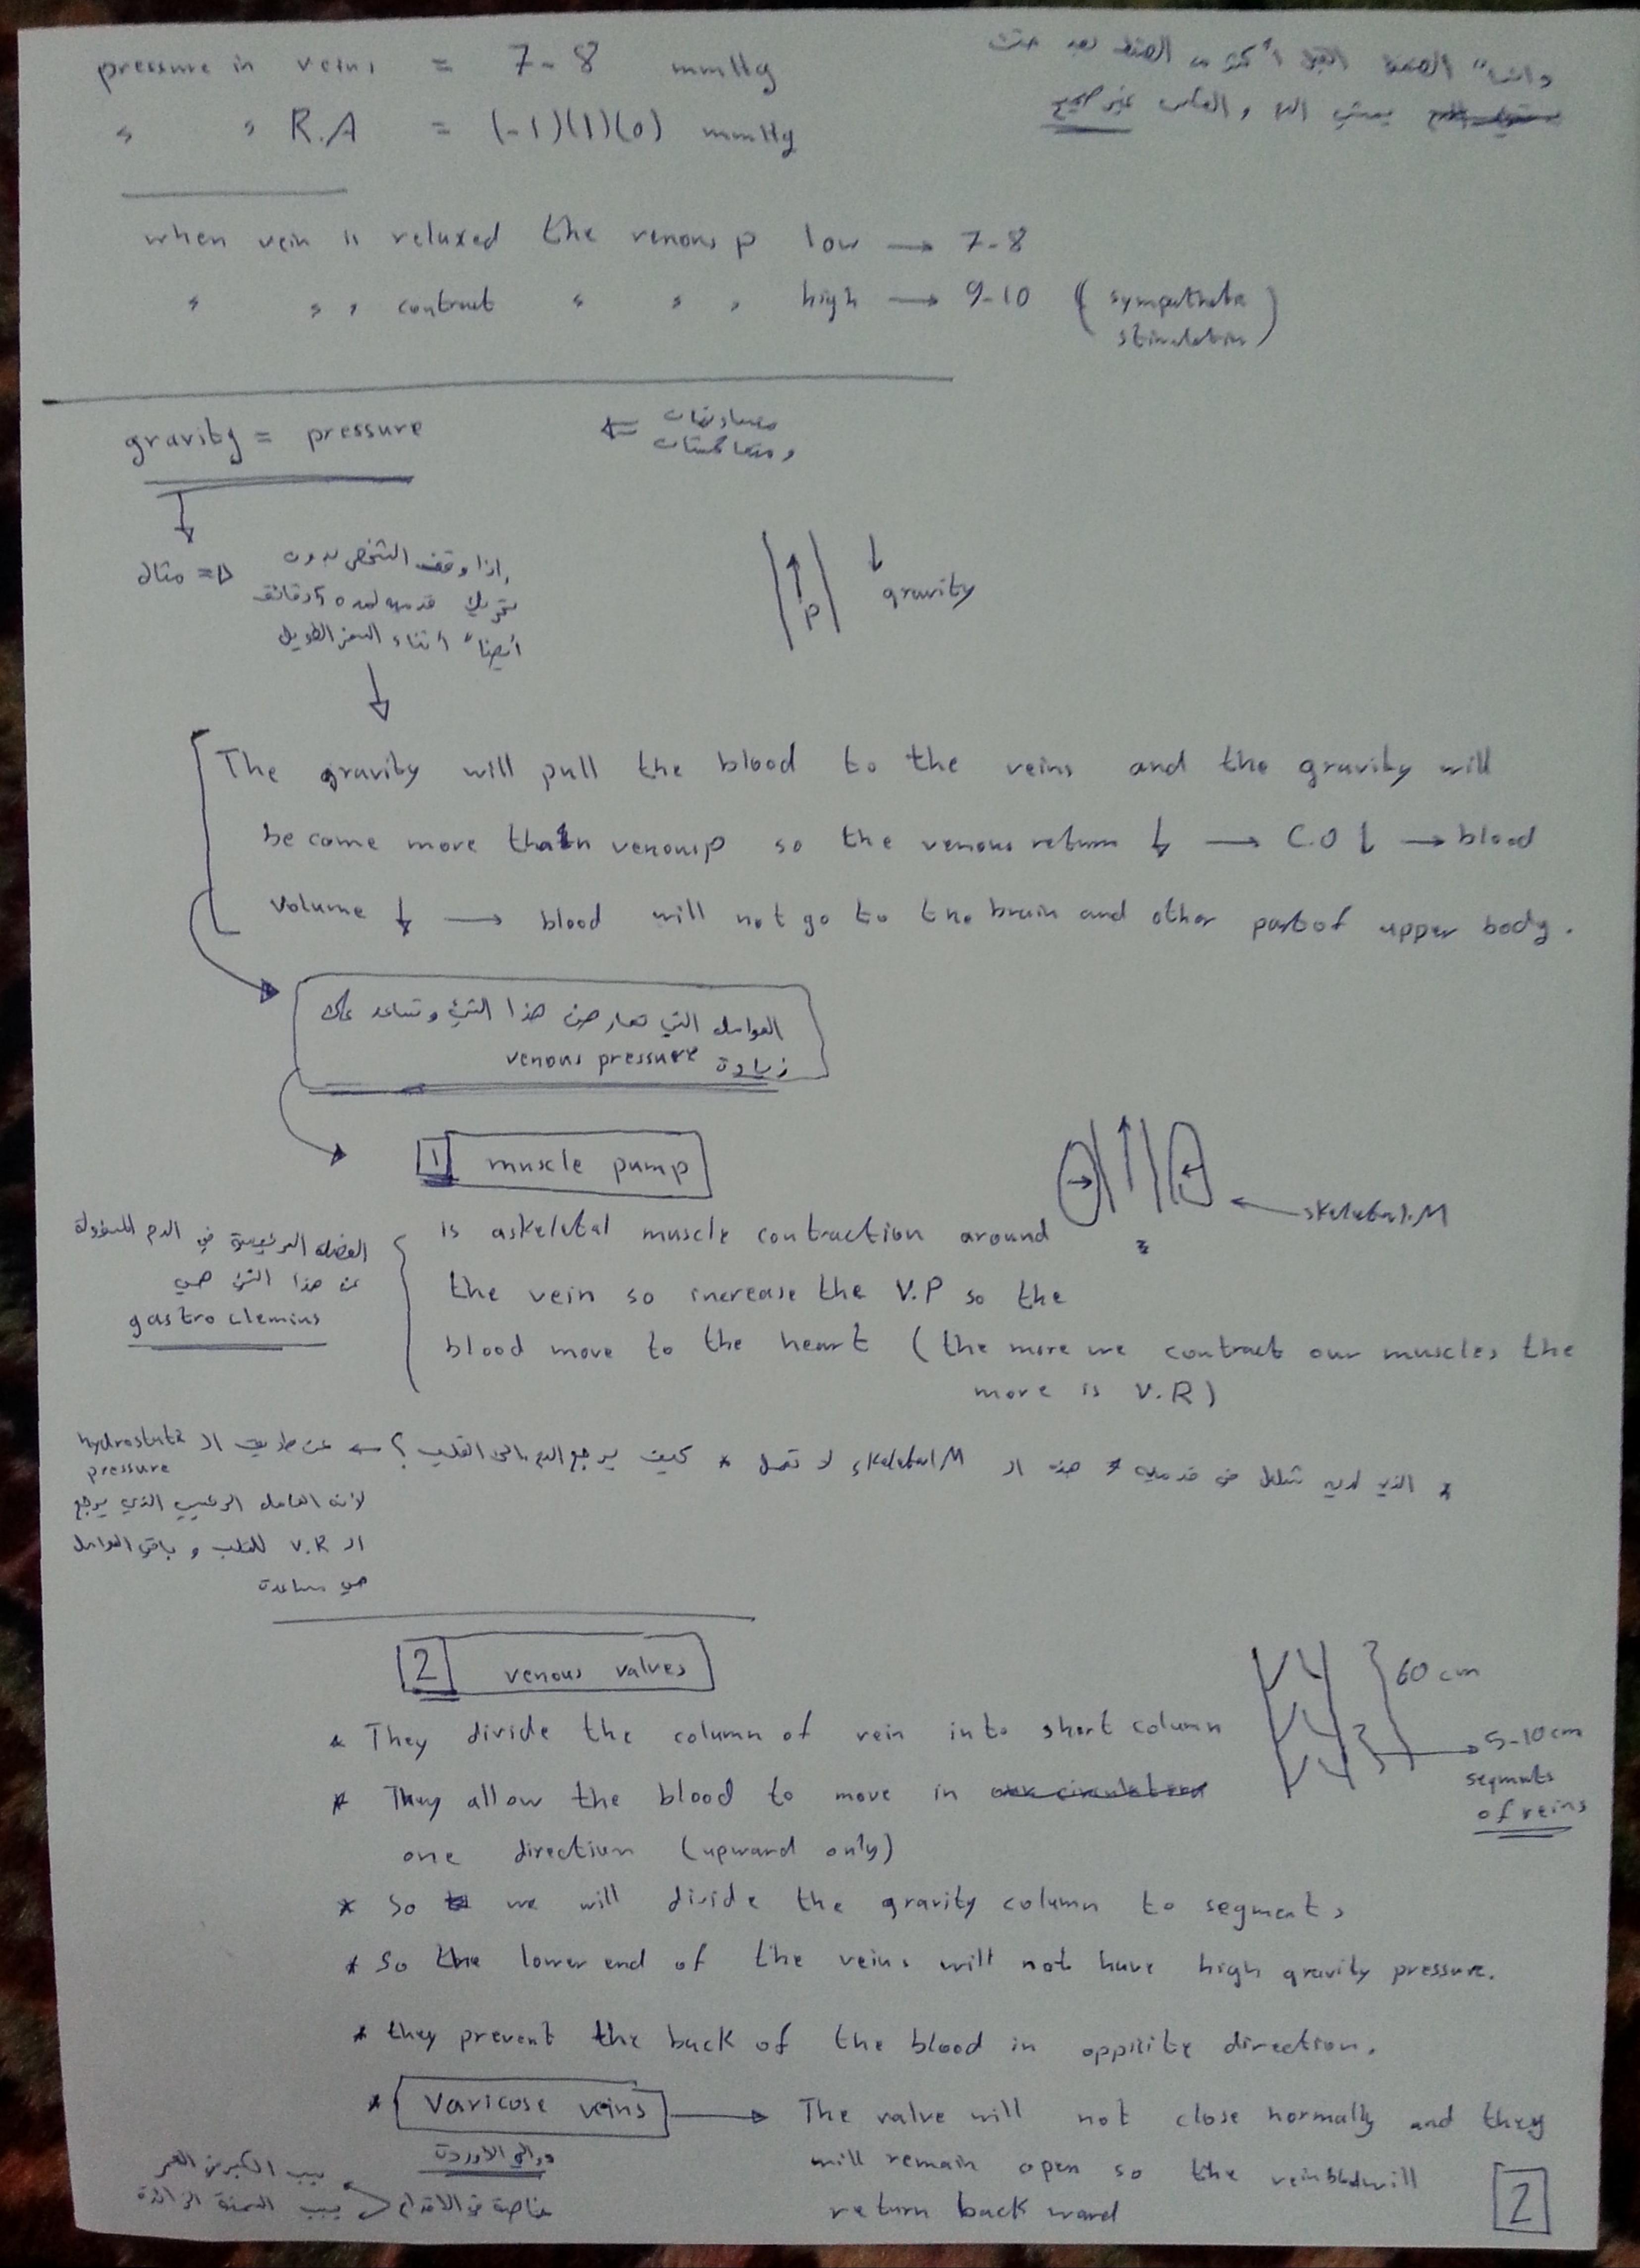 pressure in veins = 7-8 mmHg
دائما" الضغط القبل أكبر من الضغط بعد حتى
يمشي الدم والعكس غير صحيح
" " R.A = (-1)(1)(0) mmHg
when vein is relaxed the venous p low → 7-8
" " " contract " " " high → 9-10 (sympathetic stimulation)
gravity = pressure
متساويتان ⇐
ومتعاكستان
مثال ⇒ إذا وقف الشخص بدون
تحريك قدميه لمدة 5 دقائق
أيضا" أثناء السفر الطويل
↑ p
↓ gravity
The gravity will pull the blood to the veins and the gravity will
become more than venous p so the venous return ↓ → C.O ↓ → blood
volume ↓ → blood will not go to the brain and other part of upper body.
العوامل التي تعارض هذا الشيء وتساعد على
زيادة venous pressure
1 muscle pump
skeletal.M
is askeletal muscle contraction around
the vein so increase the V.P so the
blood move to the heart (the more we contract our muscles the
more is V.R)
العضلة الرئيسية في الدم المسؤولة
عن هذا الشيء هي
gastroclemius
* الذي لديه شلل في قدميه * هذه الـ skeletal M لا تعمل * كيف يرجع الدم إلى القلب؟ ← عن طريق الـ hydrostatic
pressure
لأنه العامل الرئيسي الذي يرجع
الـ V.R للقلب و باقي العوامل
هي مساعدة
2 venous valves
60 cm
5-10cm
segments
of veins
* They divide the column of vein into short column
* They allow the blood to move in
one direction (upward only)
* So we will divide the gravity column to segments
* So the lower end of the veins will not have high gravity pressure.
* they prevent the back of the blood in oppisite direction.
* Varicose veins → The valve will not close normally and they
will remain open so the vein blood will
return back ward
دوالي الاوردة
خاصة في الاقدام
بسبب الكبر في العمر
بسبب السمنة الزائدة
2